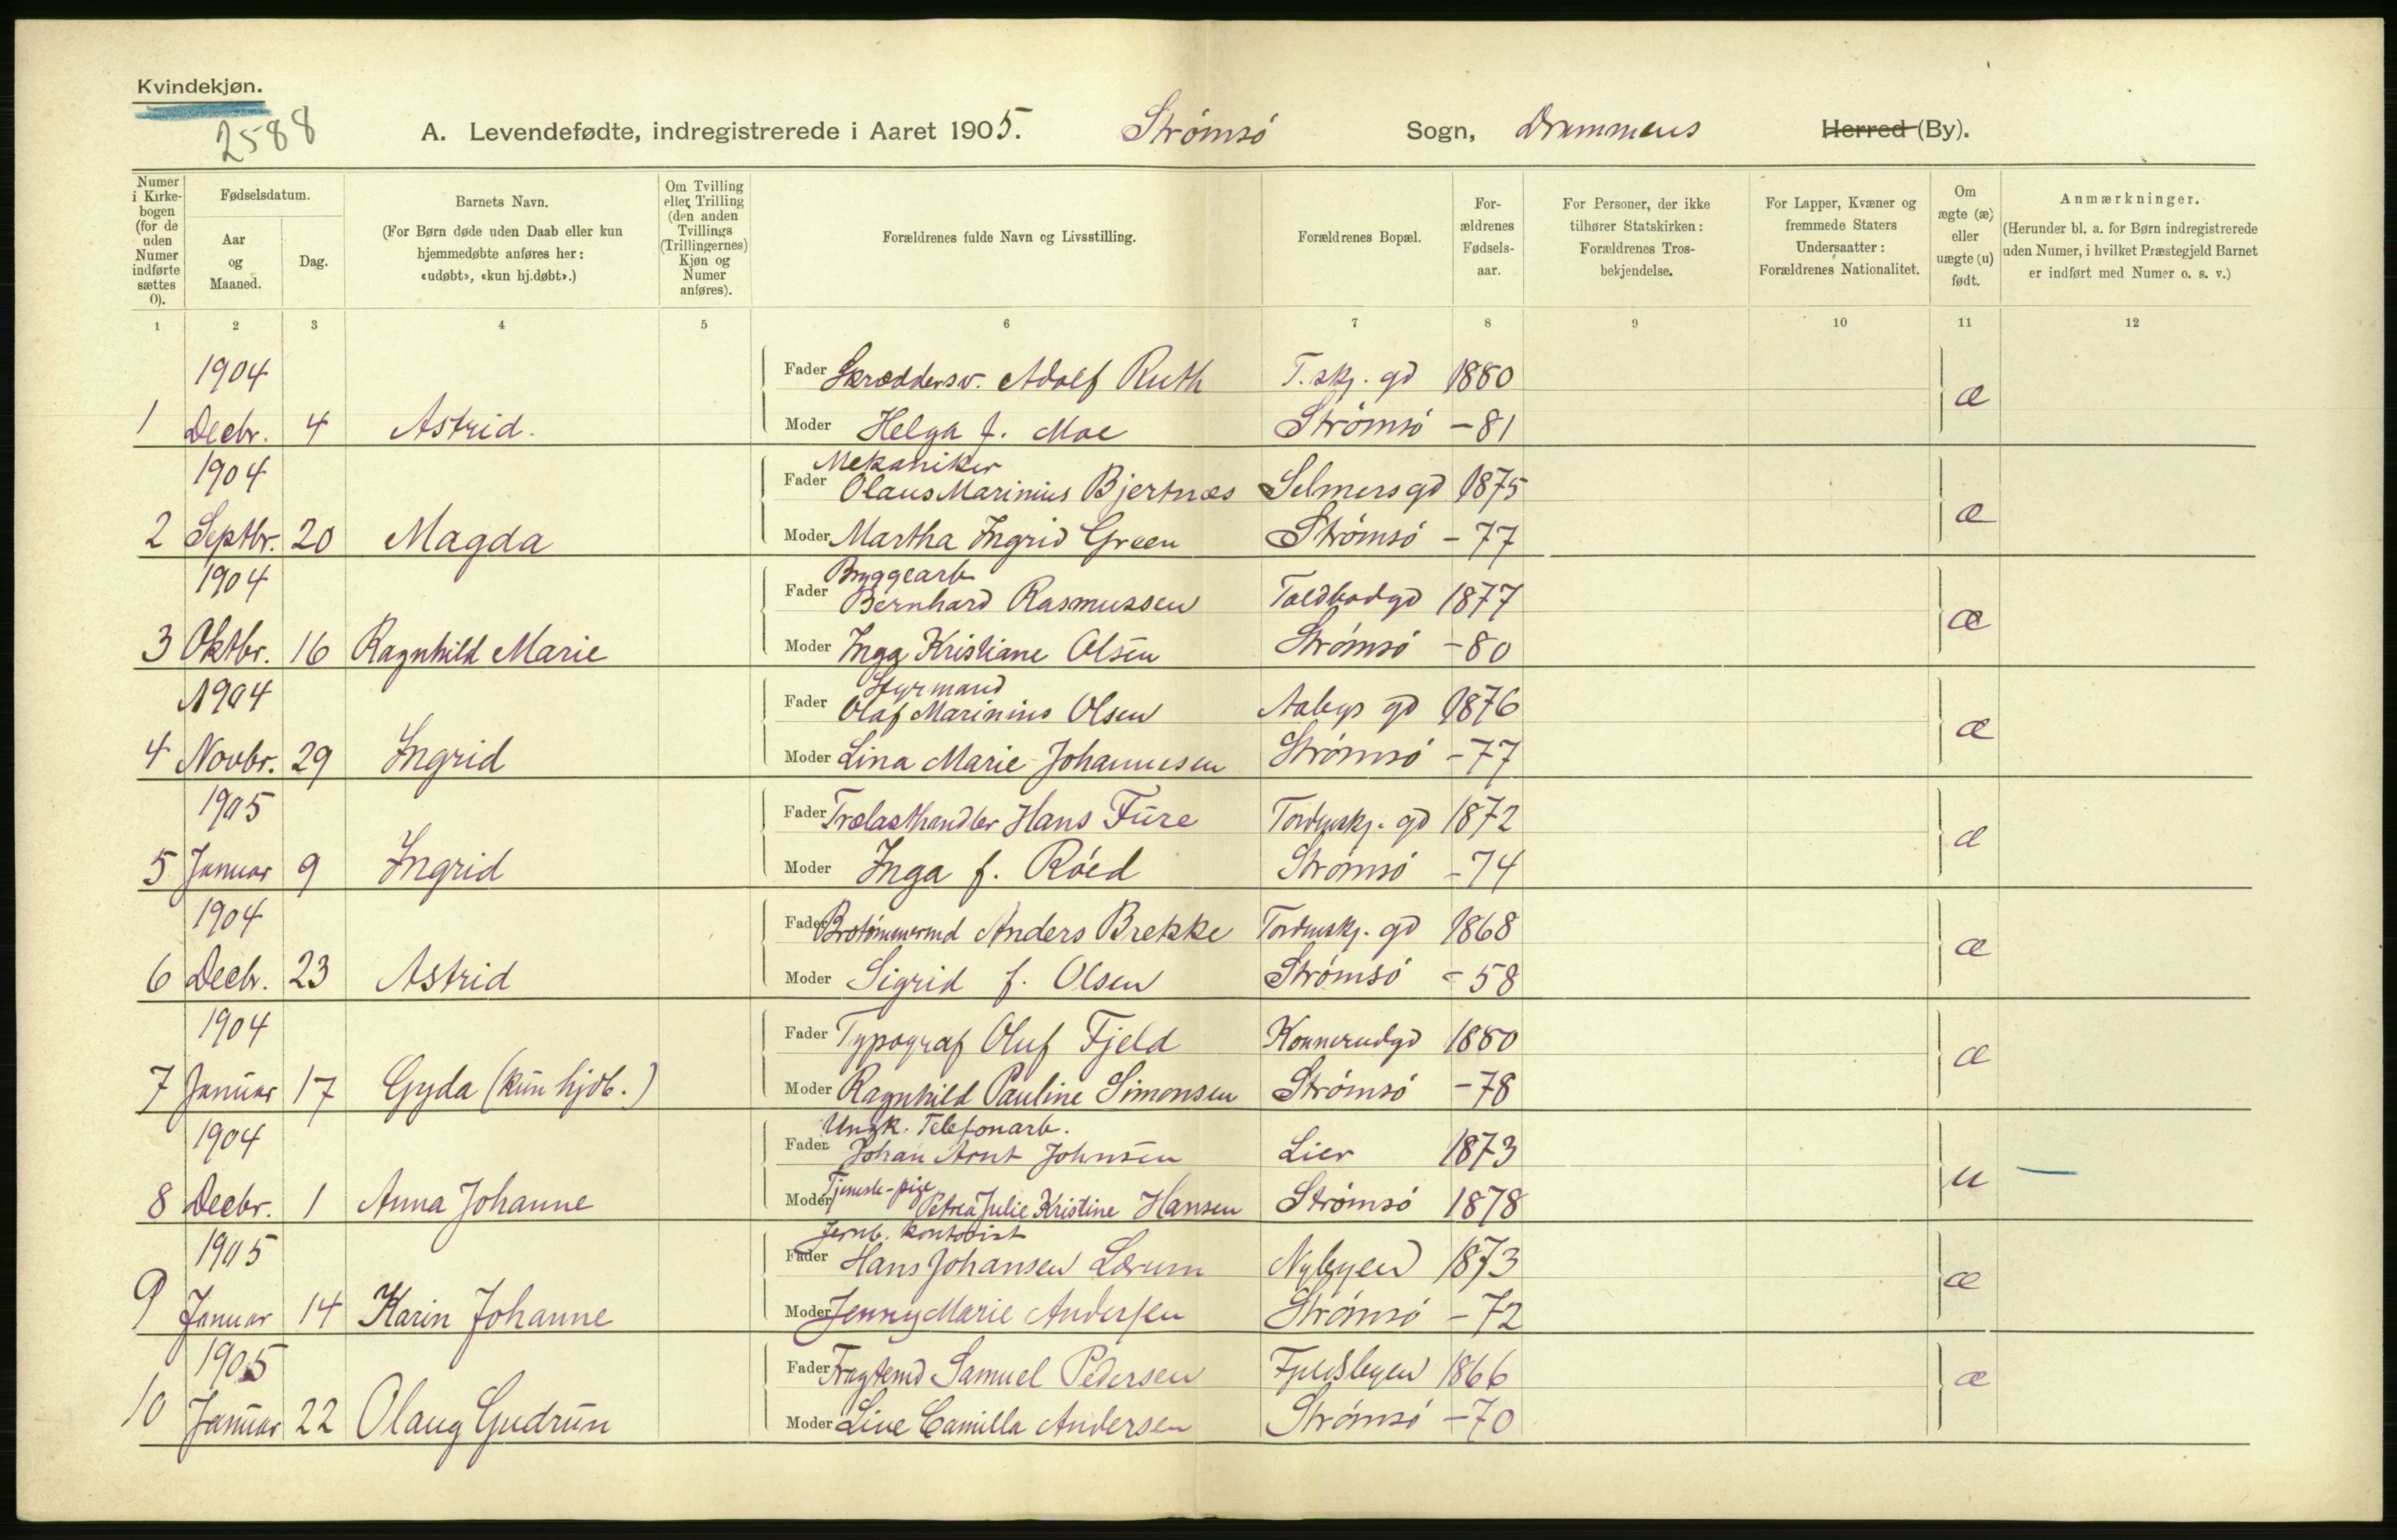 Kvindekjøn.
2588
A. Levendefødte, indregistrerede i Aaret 1905. Strømsø Sogn, Drammens Herred (By).
Numer i Kirkebogen (for de uden Numer indførte sættes 0).
Fødselsdatum.
Aar og Maaned.
Dag.
Barnets Navn.
(For Børn døde uden Daab eller kun hjemmedøbte anføres her: «udøbt», «kun hj.døbt».)
Om Tvilling eller Trilling (den anden Tvillings (Trillingernes) Kjøn og Numer anføres).
Forældrenes fulde Navn og Livsstilling.
Forældrenes Bopæl.
Forældrenes Fødselsaar.
For Personer, der ikke tilhører Statskirken: Forældrenes Trosbekjendelse.
For Lapper, Kvæner og fremmede Staters Undersaatter: Forældrenes Nationalitet.
Om ægte (æ) eller uægte (u) født.
Anmærkninger.
(Herunder bl. a. for Børn indregistrerede uden Numer, i hvilket Præstegjeld Barnet er indført med Numer o. s. v.)
1 2 3 4 5 6 7 8 9 10 11 12
1904 Fader Skræddersv. Adolf Ruth T.skj. gd 1880 æ
1 Decbr. 4 Astrid. Moder Helga f. Moe Strømsö -81
Mekaniker
1904 Fader Olaus Marinius Bjertnæs Selmers gd 1875 æ
2 Septbr. 20 Magda Moder Martha Ingrid Green Strömsö -77
Bryggearb
1904 Fader Bernhard Rasmussen Toldbodgd 1877 æ
3 Oktbr. 16 Ragnhild Marie Moder Inga Kristiane Olsen Strömsö -80
Styrmand
1904 Fader Olaf Marinius Olsen Aabys gd 1876 æ
4 Novbr. 29 Ingrid Moder Lina Marie Johannesen Strömsö -77
1905 Fader Trælasthandler Hans Fure Tordenskj. gd 1872 æ
5 Januar 9 Ingrid Moder Inga f. Röed Strömsö -74
1904 Fader Anders Brekke Tordenskj. gd 1868 æ
6 Decbr. 23 Astrid Moder Sigrid f. Olsen Strömsö -58
1904 Fader Typograf Oluf Fjeld Konnerudgd 1880 æ
7 Januar 17 Gyda (kun hjdb.) Moder Ragnhild Pauline Simonsen Strömsö -78
Ungk. Telefonarb.
1904 Fader Johan Arnt Johnsen Lier 1873 u —
8 Decbr. 1 Anna Johanne Moder Tjeneste-pige Petrea Julie Kristine Hansen Strömsö 1878
Jernb. kontorist
1905 Fader Hans Johansen Lørum Nybyen 1873 æ
9 Januar 14 Karin Johanne Moder Jenny Marie Andersen Strömsö -72
1905 Fader Fragtemd Samuel Pedersen Fjeldsbyen 1866 æ
10 Januar 22 Olaug Gudrun Moder Line Camilla Andersen Strömsö -70